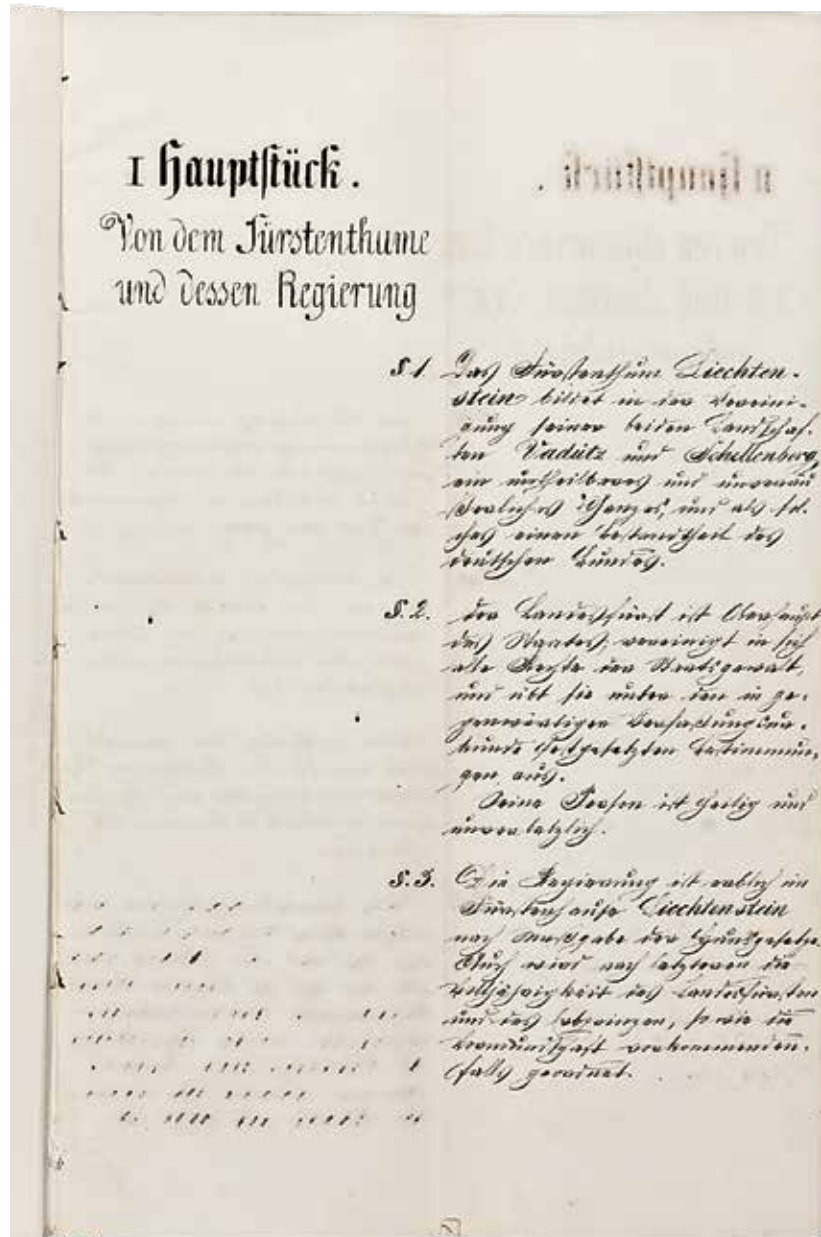 I Hauptstück.
Von dem Fürstenthume
und dessen Regierung
§.1. Das Fürstenthum Liechten-
stein bildet in der Vereini-
gung seiner beiden Landschaf-
ten Vadutz und Schellenberg
ein untheilbares und unveräu
ßerliches Ganzes, und als sol-
ches einen Bestandtheil des
deutschen Bundes.
§.2. der Landesfürst ist Oberhaupt
des Staates, vereinigt in sich
alle Rechte der Staatsgewalt,
und übt sie unter den in ge-
genwärtiger Verfassungsur-
kunde festgesetzten Bestimmun-
gen aus.
Seine Person ist heilig und
unverletzlich.
§.3. Die Regierung ist erblich im
Fürstenhause Liechtenstein
nach Maßgabe der Hausgesetze.
Auch wird nach letzteren die
Volljährigkeit des Landesfürsten
und des Erbprinzen, so wie die
Vormundschaft vorkommenden-
falls geordnet.